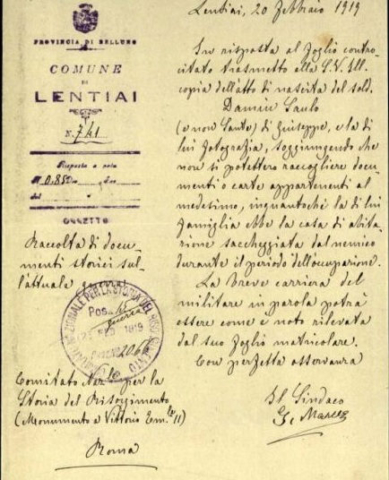 PROVINCIA DI BELLUNO
COMUNE
DI
LENTIAI
N. 741
Risposta a nota
OGGETTO
Raccolta di docu-
menti storici sul-
l'attuale guerra
Comitato Naz. per la
Storia del Risorgimento
(Monumento a Vittorio Em.le II)
Roma
Lentiai, 20 Febbraio 1919
In risposta al foglio contro-
citato trasmetto alla S.V. Ill.
copia dell'atto di nascita del sold.
Damian Paulo
(e non Santo) di Giuseppe, e la di
lui fotografia, soggiungendo che
non si potettero raccogliere docu-
menti o carte appartenenti al
medesimo, inquantochè la di lui
famiglia ebbe la casa di abita-
zione saccheggiata dal nemico
durante il periodo dell'occupazione.
La breve carriera del
militare in parola potrà
essere come è noto rilevata
dal suo foglio matricolare.
Con perfetta osservanza
Il Sindaco